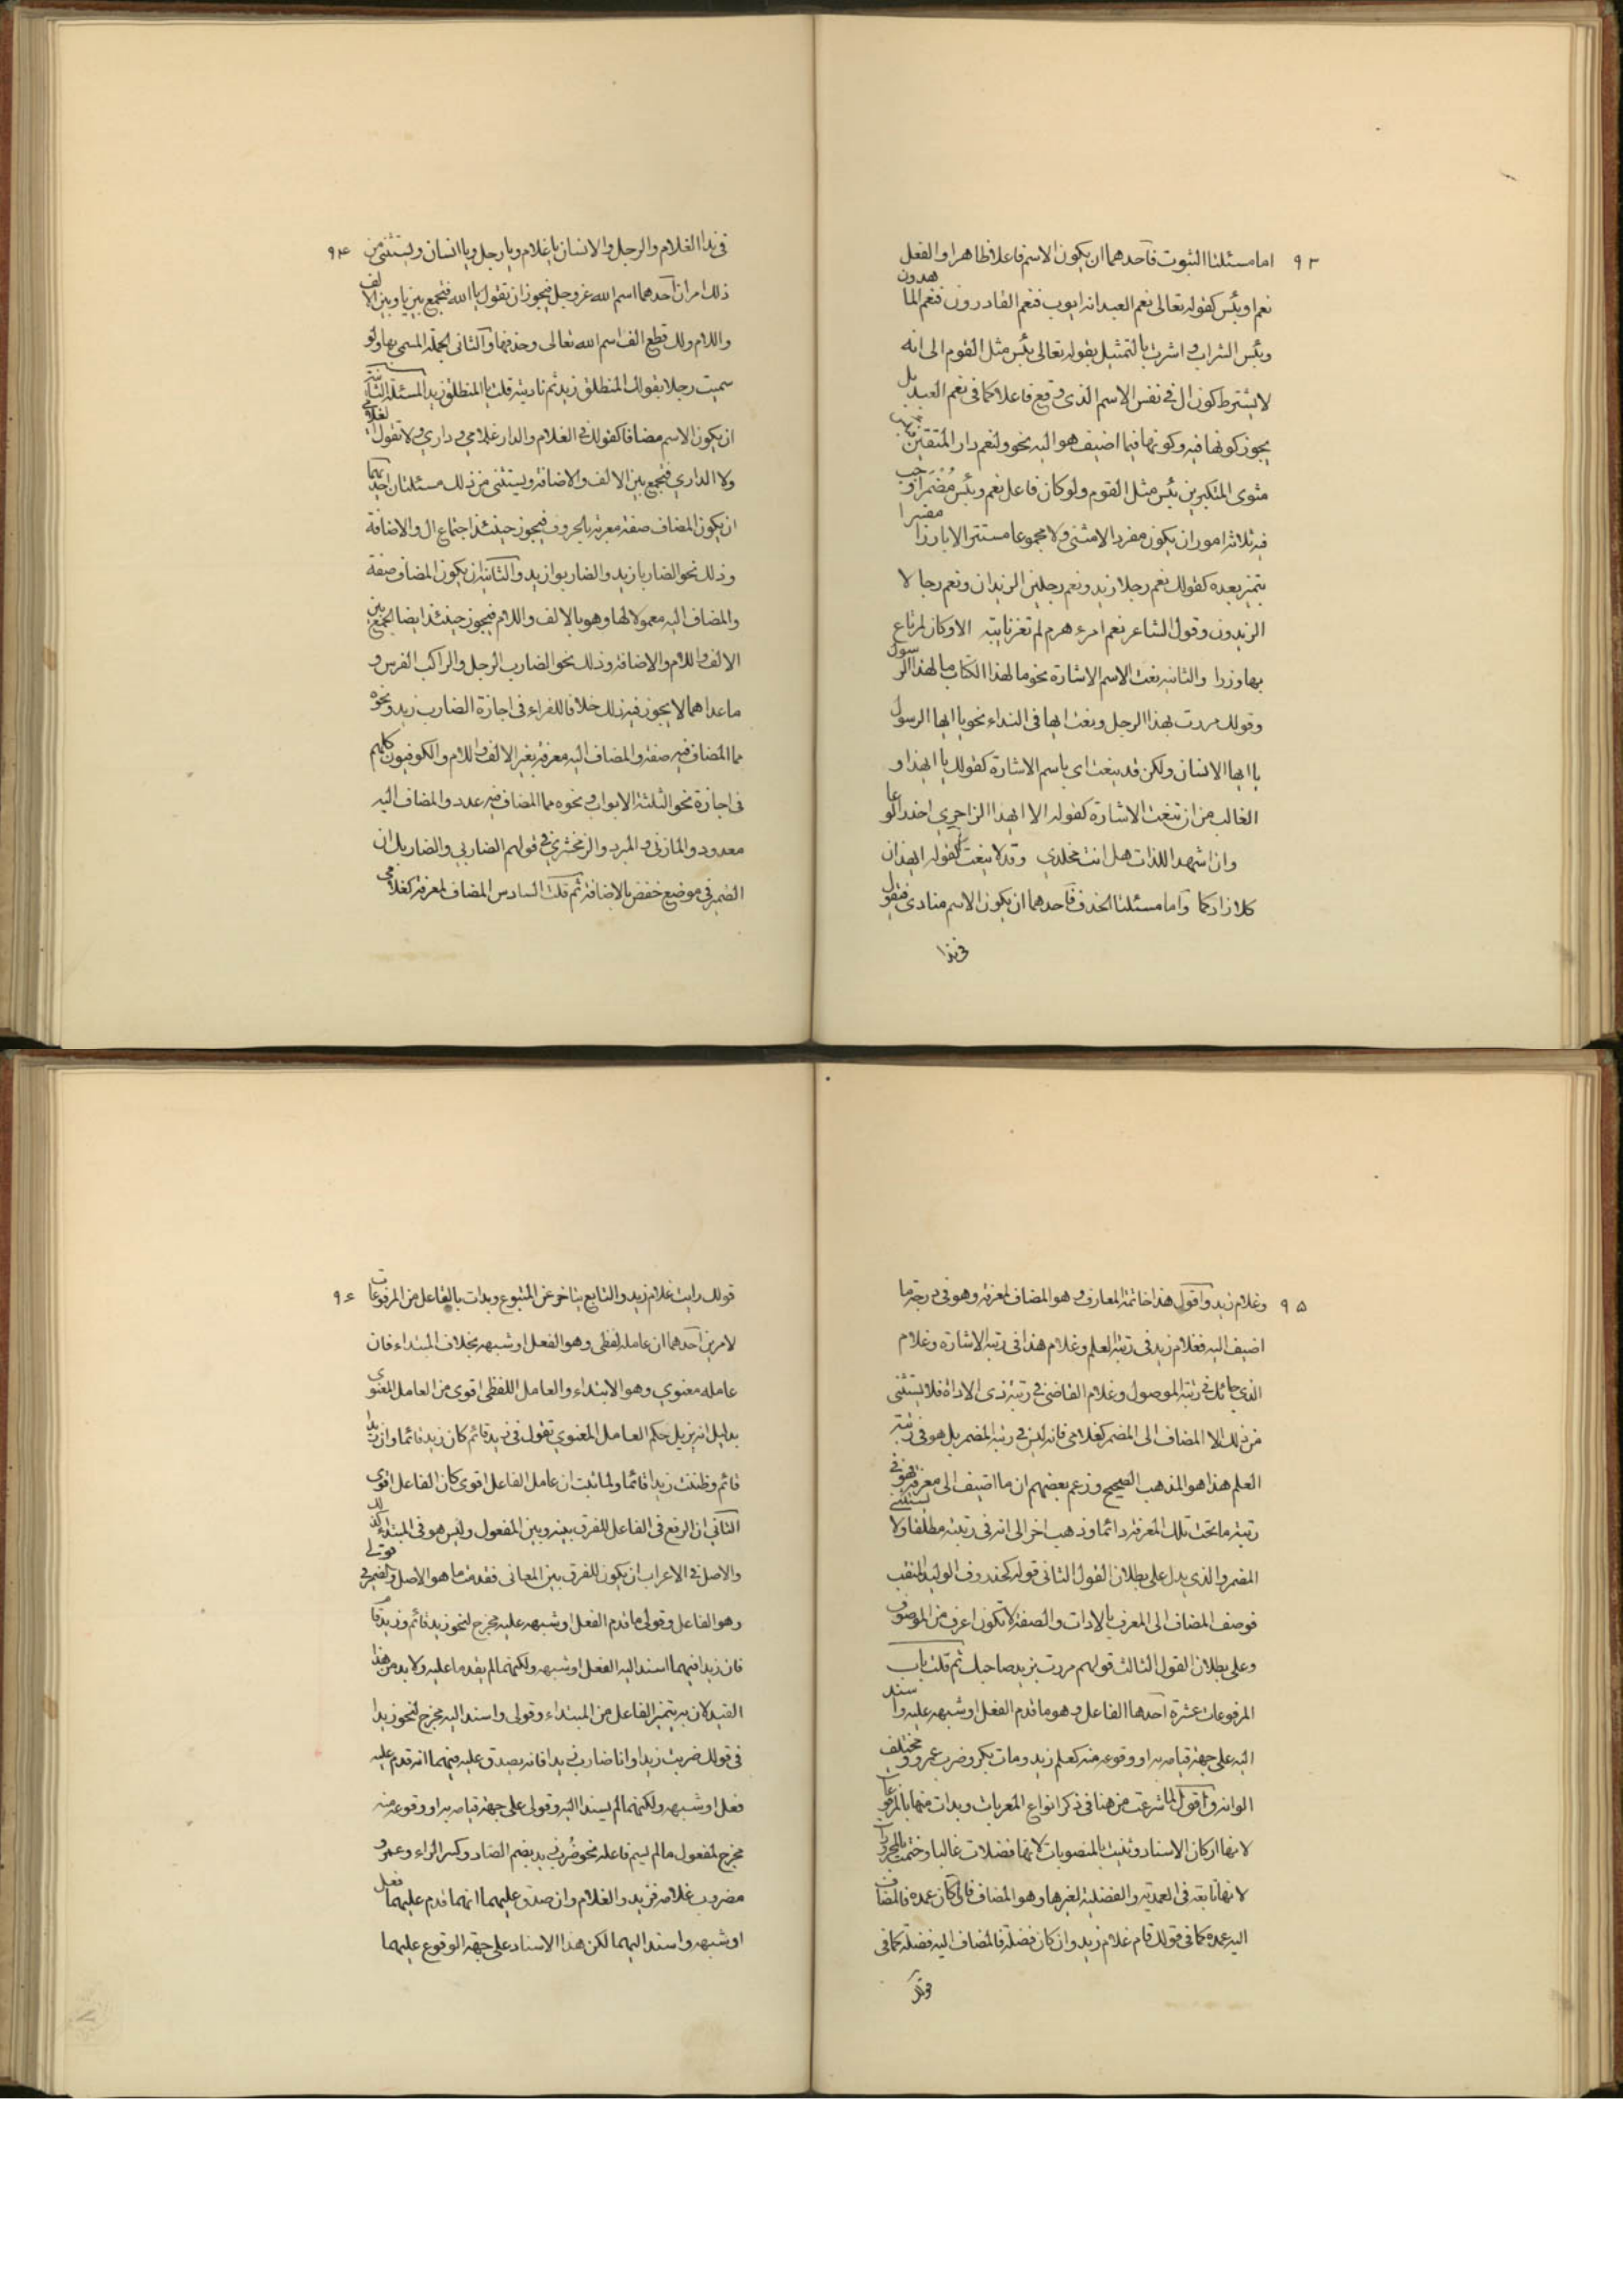 ٩٣ اما مسئلتا الثبوت فاحدهما ان يكون الاسم فاعلا ظاهرا والفعل
نعم او بئس كقوله تعالى نعم العبد انه ايوب فنعم القادرون فنعم الماهدون
وبئس الشراب واشرت بالتمثيل بقوله تعالى بئس مثل القوم الى انه
لا يشترط كون ال في نفس الاسم الذى وقع فاعلا كما في نعم العبد بل
يجوز كونها فيه وكونها فيما اضيف هو اليه نحو ولنعم دار المتقين
مثوى المتكبرين بئس مثل القوم ولو كان فاعل نعم وبئس مضمرا وجب
فيه ثلاثة امور ان يكون مفردا لا مثنى ولا مجموعا مستترا لا بارزا مفسرا
بتميز بعده كقولك نعم رجلا زيد ونعم رجلين الزيدان ونعم رجالا
الزيدون وقول الشاعر نعم امرء هرم لم تعر نايبة الا وكان لمرتاع
بها وزرا والثانية نعت الاسم الاشارة نحو ما لهذا الكتاب ما لهذا الرسول
وقولك مررت بهذا الرجل ونعت ايها فى النداء نحو يا ايها الرسول
يا ايها الانسان ولكن قد ينعت اى باسم الاشارة كقولك يا ايهذا و
الغالب من ان تنعت الاشارة كقوله الا ايهذا الزاجري احضر الوغا
وان اشهد اللذات هل انت مخلدي وقد لا ينعت كقوله ايهذان
كلا زادكما واما مسئلتا الحذف فاحدهما ان يكون الاسم منادى فتقول
في ندا
٩٤ في ندا الغلام والرجل والانسان يا غلام ويا رجل ويا انسان ويستثنى من
ذلك امران احدهما اسم الله عز وجل فيجوز ان تقول يا الله فتجمع بين يا وبين الالف
واللام ولك قطع الف اسم الله تعالى وحذفها والثانى الجملة المسمى بها ولو
سميت رجلا بقولك المنطلق زيد ثم ناديته قلت يا المنطلق زيد المسئلة الثانية
ان يكون الاسم مضافا كقولك في الغلام والدار غلامي وداري ولا تقول الغلامي
ولا الداري فتجمع بين الالف والاضافة ويستثنى من ذلك مسئلتان احديهما
ان يكون المضاف صفة معربة بالحروف فيجوز حينئذ اجتماع ال والاضافة
وذلك نحو الضاربا زيد والضاربوا زيد والثانية ان يكون المضاف صفة
والمضاف اليه معمولا لها وهو بالالف واللام فيجوز حينئذ ايضا الجمع بين
الالف واللام والاضافة وذلك نحو الضارب الرجل والراكب الفرس و
ما عداهما لا يجوز فيه ذلك خلافا للفراء فى اجازة الضارب زيد ونحوه
مما المضاف فيه صفة والمضاف اليه معرفة بغير الالف واللام والكوفيون كلهم
فى اجازة نحو الثلثة الابواب ونحوه مما المضاف فيه عدد والمضاف اليه
معدود والمازنى والمبرد والزمخشري في قولهم الضاربي والضاربك ان
الضمير في موضع خفض بالاضافة ثم قلت السادس المضاف لمعرفة كغلامى
٩٥ وغلام زيد واقول هذا خاتمة المعارف وهو المضاف لمعرفة وهو فى درجة ما
اضيف اليه فغلام زيد فى رتبة العلم وغلام هذا فى رتبة الاشارة وغلام
الذي جائك في رتبة الموصول وغلام القاضى في رتبة ذى الاداة فلا يستثنى
من ذلك الا المضاف الى المضمر كغلامى فانه ليس في رتبة المضمر بل هو فى رتبة
العلم هذا هو المذهب الصحيح وزعم بعضهم ان ما اضيف الى معرفة فهو فى
رتبة ما تحت تلك المعرفة دائما وذهب اخر الى انه فى رتبته مطلقا ولا يستثنى
المضمر والذي يدل على بطلان القول الثانى قوله كخذروف الوليد المثقب
فوصف المضاف الى المعرف بالادات والصفة لا تكون اعرف من الموصوف
وعلى بطلان القول الثالث قولهم مررت بزيد صاحبك ثم قلت باب
المرفوعات عشرة احدها الفاعل وهو ما قدم الفعل او شبهه عليه واسند
اليه على جهة قيامه به او وقوعه منه كعلم زيد ومات بكر وضرب عمرو ومختلف
الوانه واقول لما شرعت من هنا فى ذكر انواع المعربات وبدات منها بالمرفوعات
لانها اركان الاسناد وثنيت بالمنصوبات لانها فضلات غالبا وختمت بالمجرورات
لانها تابعة فى العمدية والفضلية لغيرها وهو المضاف فان كان عمدة فالمضاف
اليه عمدة كما فى قولك قام غلام زيد وان كان فضلة فالمضاف اليه فضلة كما فى
قولك
٩٦ قولك رايت غلام زيد والتابع يتاخر عن المتبوع وبدات بالفاعل من المرفوعات
لامرين احدهما ان عامله لفظى وهو الفعل او شبهه بخلاف المبتداء فان
عامله معنوي وهو الابتداء والعامل اللفظى اقوى من العامل المعنوي
بدليل انه يزيل حكم العامل المعنوي تقول فى زيد قائم كان زيد قائما وان زيدا
قائم وظننت زيدا قائما ولما ثبت ان عامل الفاعل اقوى كان الفاعل اقوى
الثاني ان الرفع فى الفاعل للفرق بينه وبين المفعول وليس هو فى المبتداء كذلك
والاصل فى الاعراب ان يكون للفرق بين المعانى فقدمت ما هو الاصل والضمير في قولى
وهو الفاعل وقولى ما قدم الفعل او شبهه عليه مخرج لنحو زيد قائم وزيد قام
فان زيدا فيهما اسند اليه الفعل او شبهه ولكنهما لم يقدما عليه ولا بد من هذا
القيد لان به يتميز الفاعل من المبتداء وقولى واسند اليه مخرج لنحو زيدا
فى قولك ضربت زيدا وانا ضارب زيدا فانه يصدق عليه فيهما انه قدم عليه
فعل او شبهه ولكنهما لم يسندا اليه وقولى على جهة قيامه به او وقوعه منه
مخرج لمفعول ما لم يسم فاعله نحو ضُرب زيد بضم الضاد وكسر الراء وعمرو
مضروب غلامه فزيد والغلام وان صدق عليهما انهما قدم عليهما فعل
او شبهه واسند اليهما لكن هذا الاسناد على جهة الوقوع عليهما